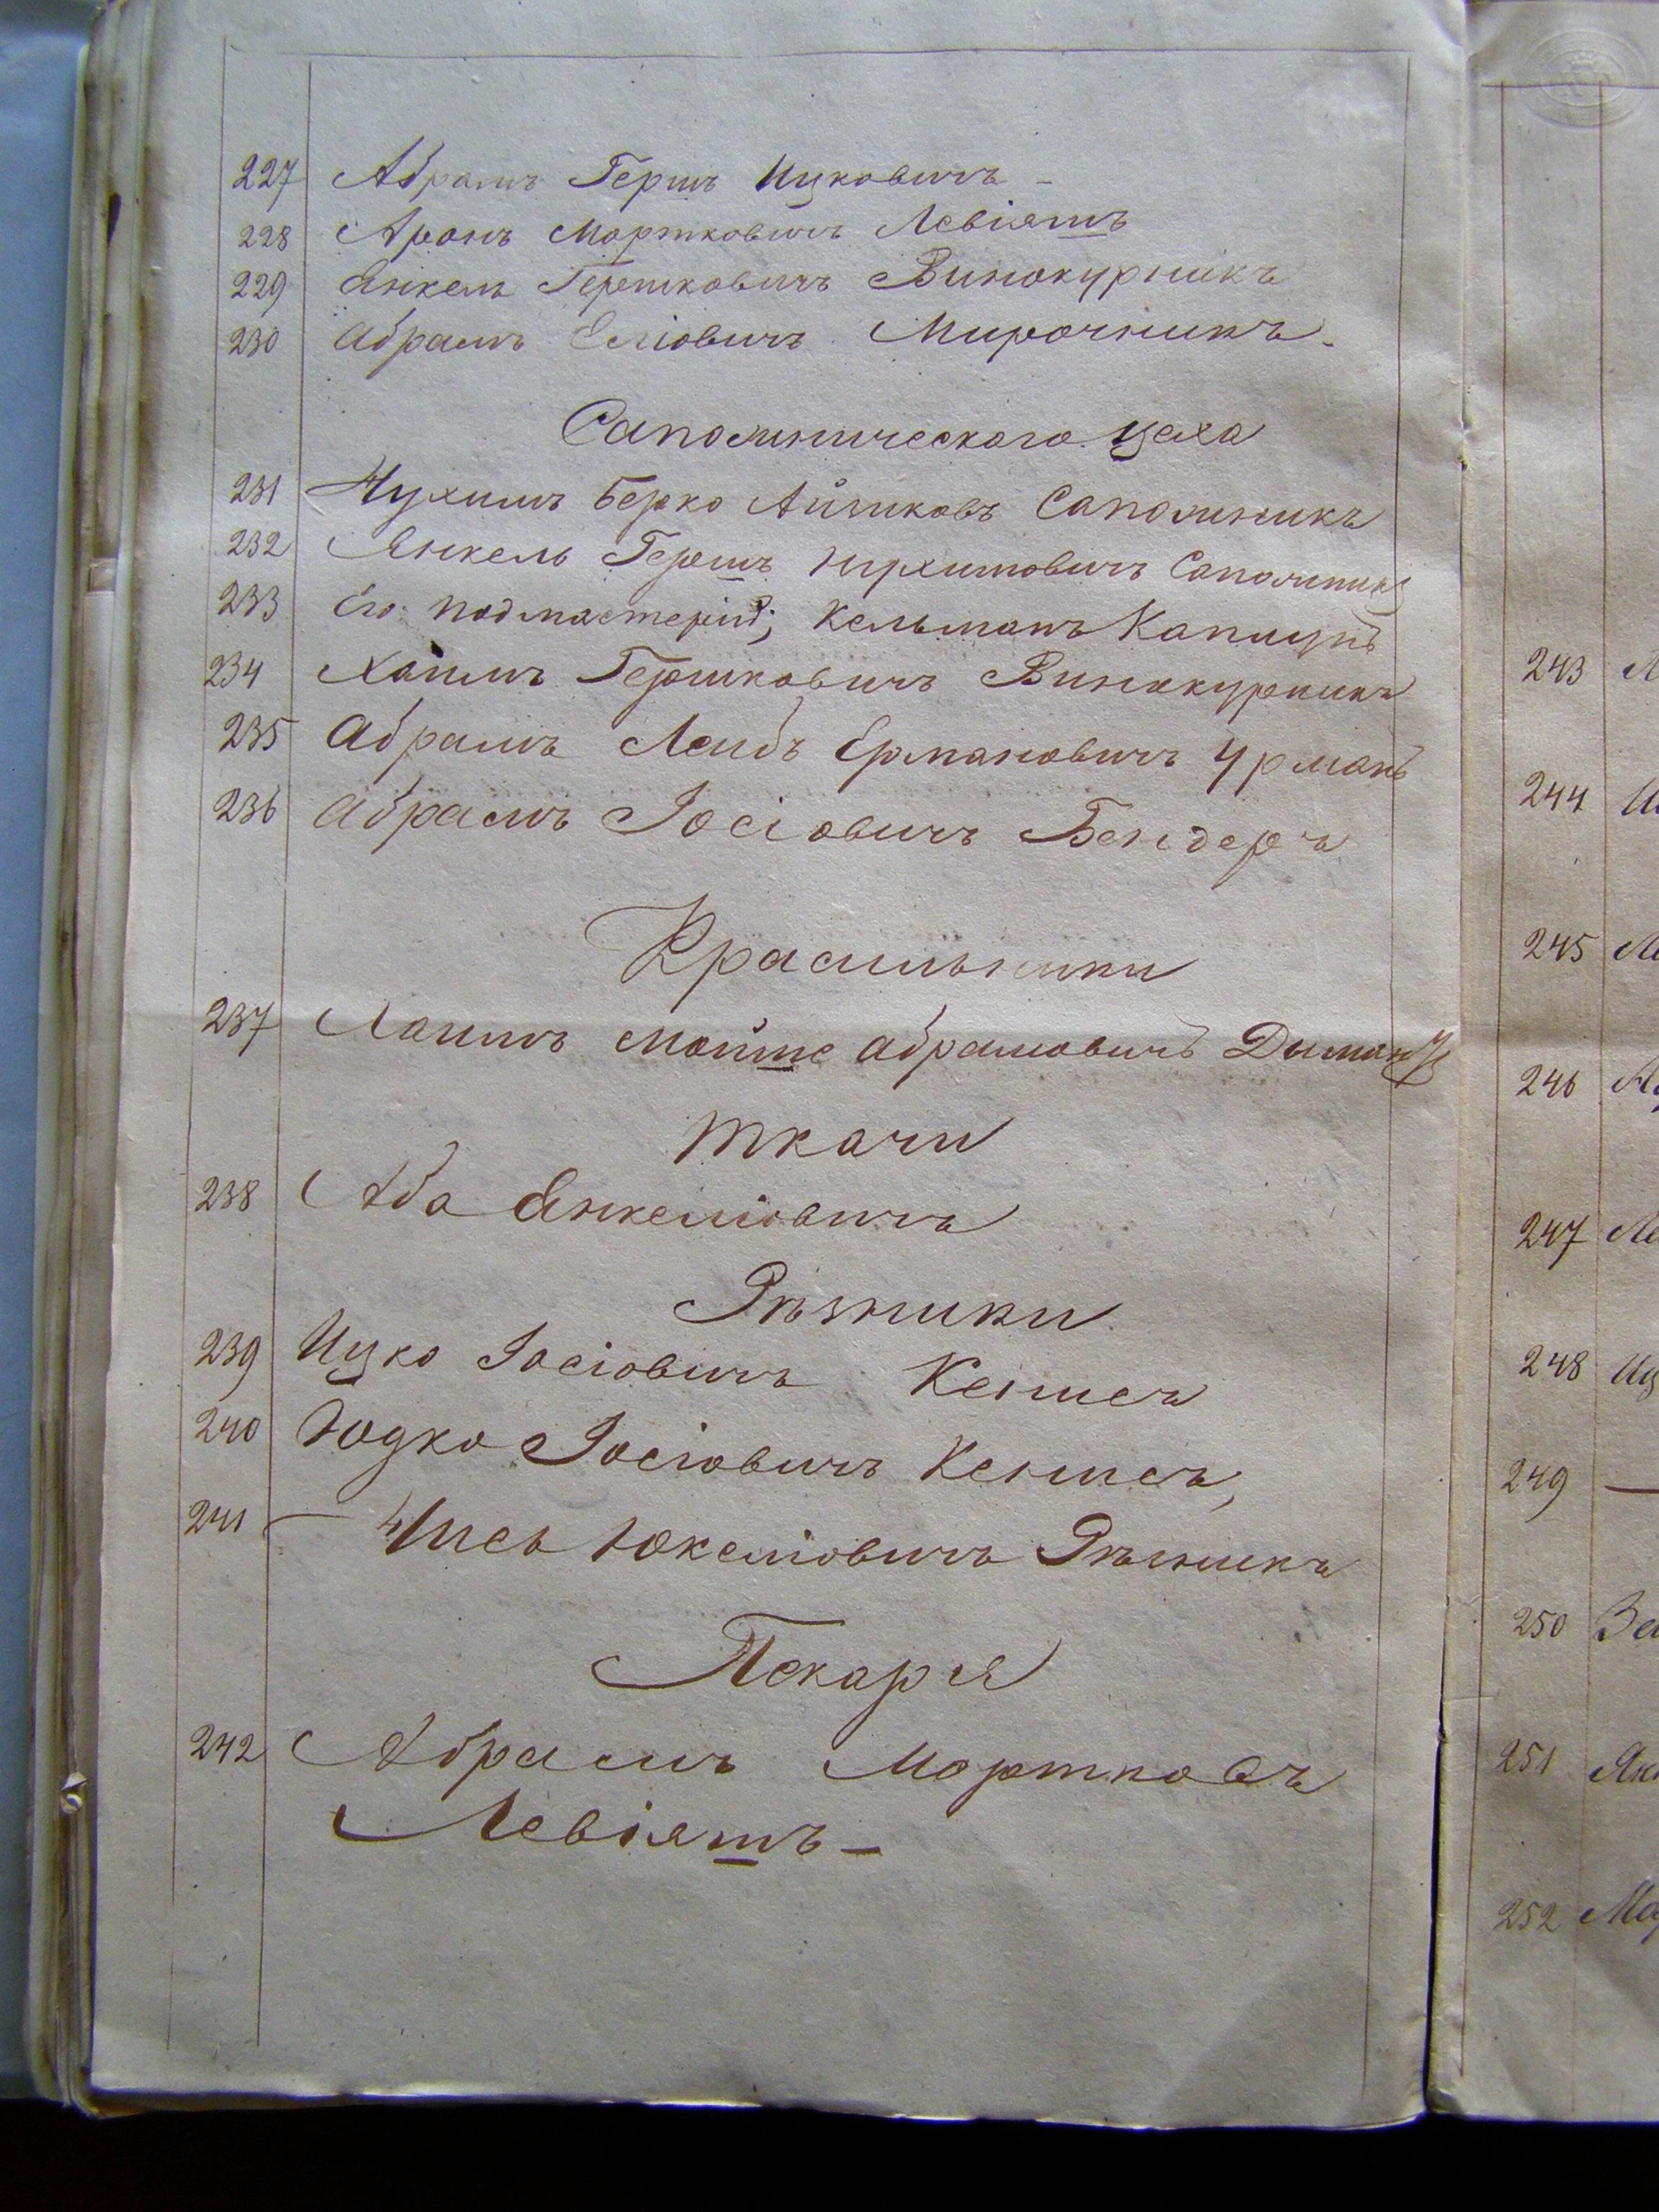 227 Абрамъ Гершъ Ицковичъ -
228 Аронъ Мортковичъ Левіятъ
229 Янкель Гершковичъ Винокурникъ
230 Абрамъ Еліовичъ Мирочникъ.
Сапожническаго цеха
231 Нухимъ Берко Айзиковъ Сапожникъ
232 Янкель Гершъ Нухимовичъ Сапожникъ
233 Его подмастерій; Кельманъ
234 Хаимъ Гершковичъ Винокурникъ
235 Абрамъ Лейбъ Ермановичъ Урманъ
236 Абрамъ Іосіовичъ Бендеръ
Красильники
237 Хаимъ Мойше Абрамовичъ
Ткачи
238 Аба Янкеліовичъ
Рѣзники
239 Ицко Іосіовичъ
240 Юдко Іосіовичъ
241 Юкеліовичъ Рѣзникъ
Пекаря
242 Абрамъ Мортковъ
Левіятъ -
243
244
245
246
247
248 Иц
249 —
250 За
251 Янк
252 Мо